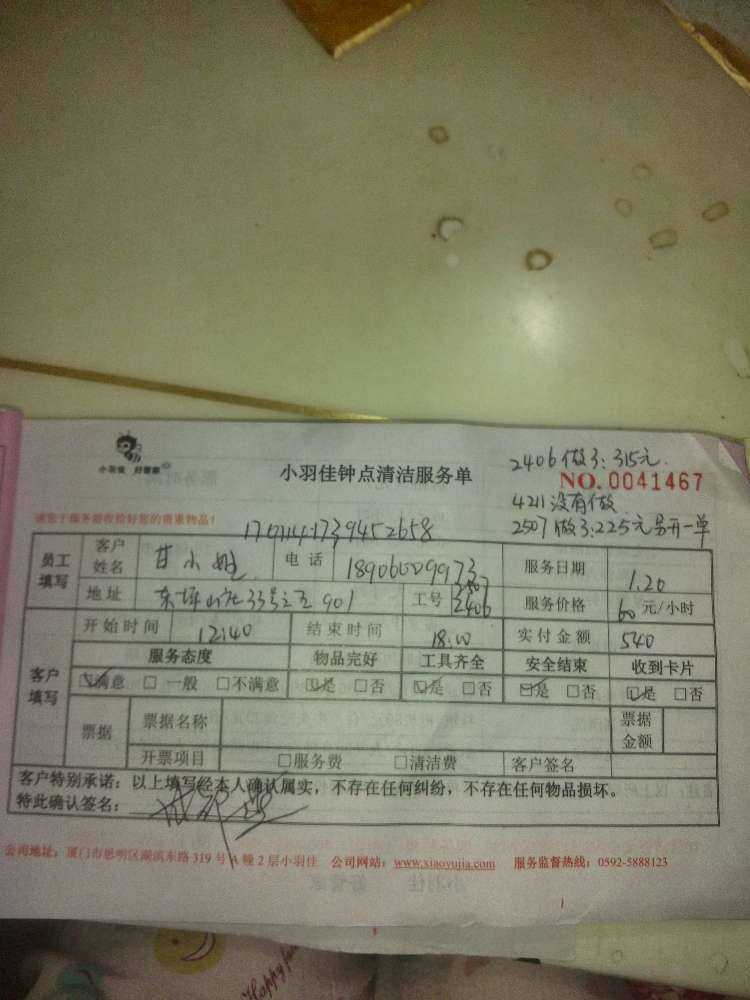 小羽佳 好管家
小羽佳钟点清洁服务单
2406做了:315元.
NO.0041467
4211没有做
2507做了:225元另开一单
请您于服务前收拾好您的贵重物品!
员工填写
客户姓名 甘小姐 电话 服务日期 1.20
地址 工号 2507 2406 服务价格 60 元/小时
客户填写
开始时间 12:40 结束时间 18:00 实付金额 540
服务态度 物品完好 工具齐全 安全结束 收到卡片
☑满意 □一般 □不满意 ☑是 □否 ☑是 □否 ☑是 □否 ☑是 □否
票据 票据名称 票据金额
开票项目 □服务费 □清洁费 客户签名
客户特别承诺:以上填写经本人确认属实,不存在任何纠纷,不存在任何物品损坏。
特此确认签名:
公司地址:厦门市思明区湖滨东路319号A幢2层小羽佳 公司网站:www.xiaoyujia.com 服务监督热线:0592-5888123